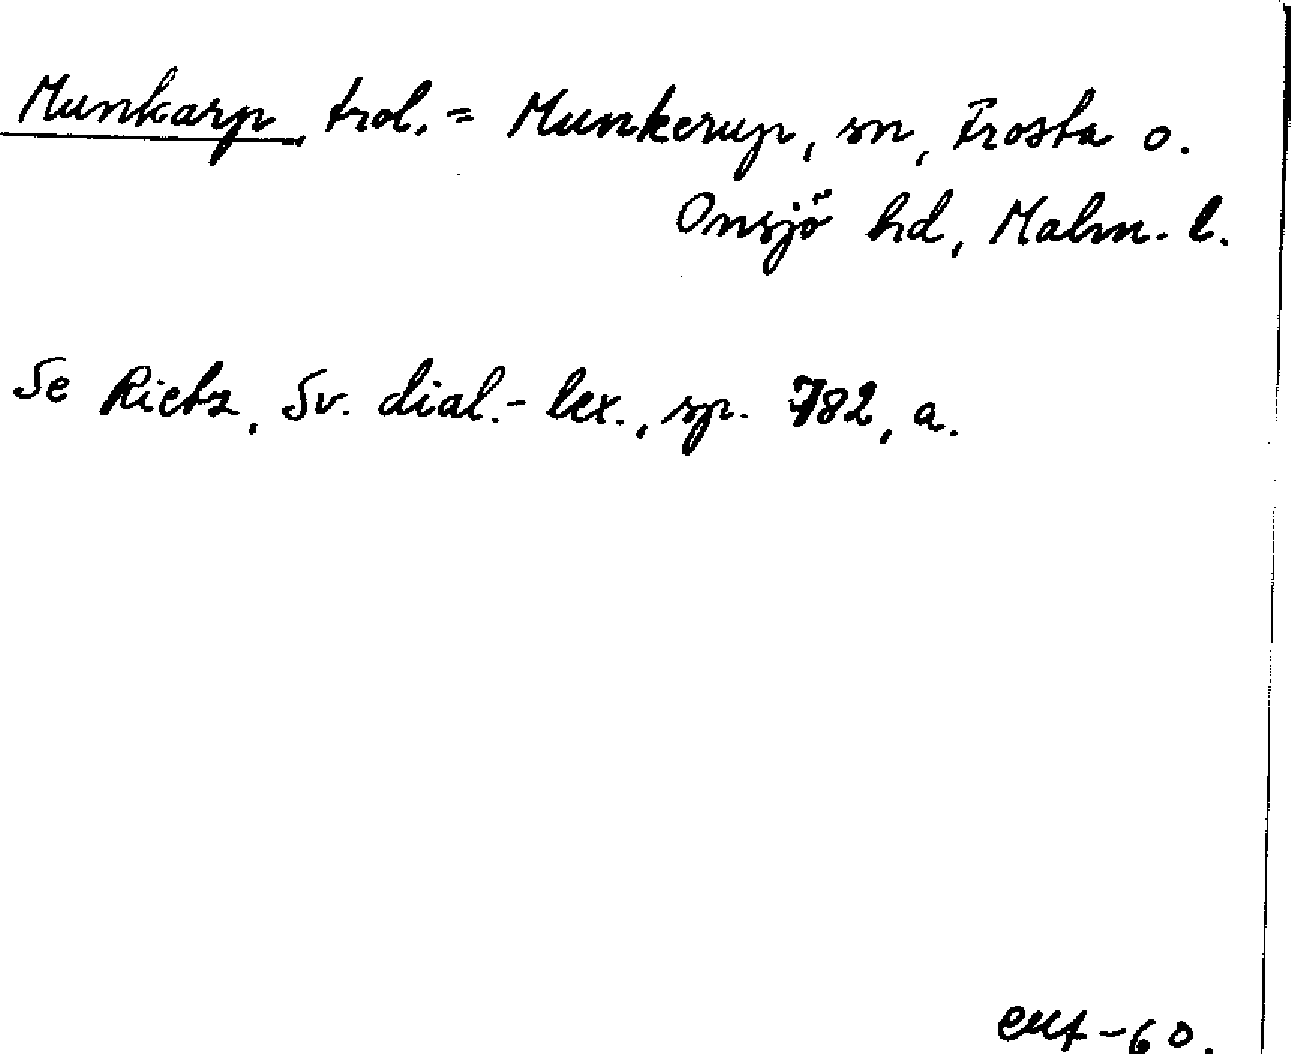 Munkarp, trol. = Munkerup, sn, Frosta o.
Onsjö hd, Malm. l.
Se Rietz, Sv. dial.-lex., sp. 782, a.
-60.